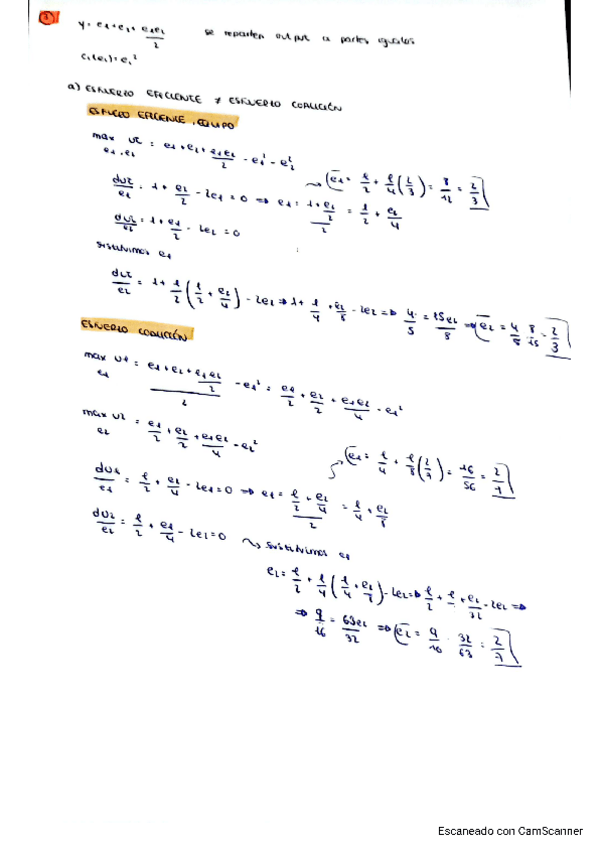 2
y = e1+e2+ e1e2/2 se reparten output a partes iguales
ci(ei)=ei²
a) ESFUERZO EFICIENTE y ESFUERZO COALICIÓN
ESFUERZO EFICIENTE, EQUIPO
max UT = e1+e2+ e1e2/2 - e1² - e2²
e1, e2
dUT/e1 = 1+ e2/2 - 2e1 = 0 ⇒ e1 = (1+ e2/2)/2 = 1/2 + e2/4
e1 = 1/2 + 1/4 (2/3) = 8/12 = 2/3
dUT/e2 = 1+ e1/2 - 2e2 = 0
sustituimos e1
dUT/e2 = 1+ 1/2 (1/2 + e2/4) - 2e2 ⇒ 1+ 1/4 + e2/8 - 2e2 ⇒ 4/5 = 15e2/8 ⇒ e2 = 4/8 · 8/15 = 2/3
ESFUERZO COALICIÓN
max U1 = (e1+e2+ e1e2/2)/2 - e1² = e1/2 + e2/2 + e1e2/4 - e1²
e1
max U2 = e1/2 + e2/2 + e1e2/4 - e2²
e2
e1 = 1/4 + 1/8 (2/7) = 16/56 = 2/7
dU1/e1 = 1/2 + e2/4 - 2e1=0 ⇒ e1 = (1/2 + e2/4)/2 = 1/4 + e2/8
dU2/e2 = 1/2 + e1/4 - 2e2=0 sustituimos e1
e2 = 1/2 + 1/4 (1/4 + e2/8) - 2e2 ⇒ 1/2 + 1/ + e2/32 - 2e2 ⇒
⇒ 9/16 = 63e2/32 ⇒ e2 = 9/16 · 32/63 = 2/7
Escaneado con CamScanner